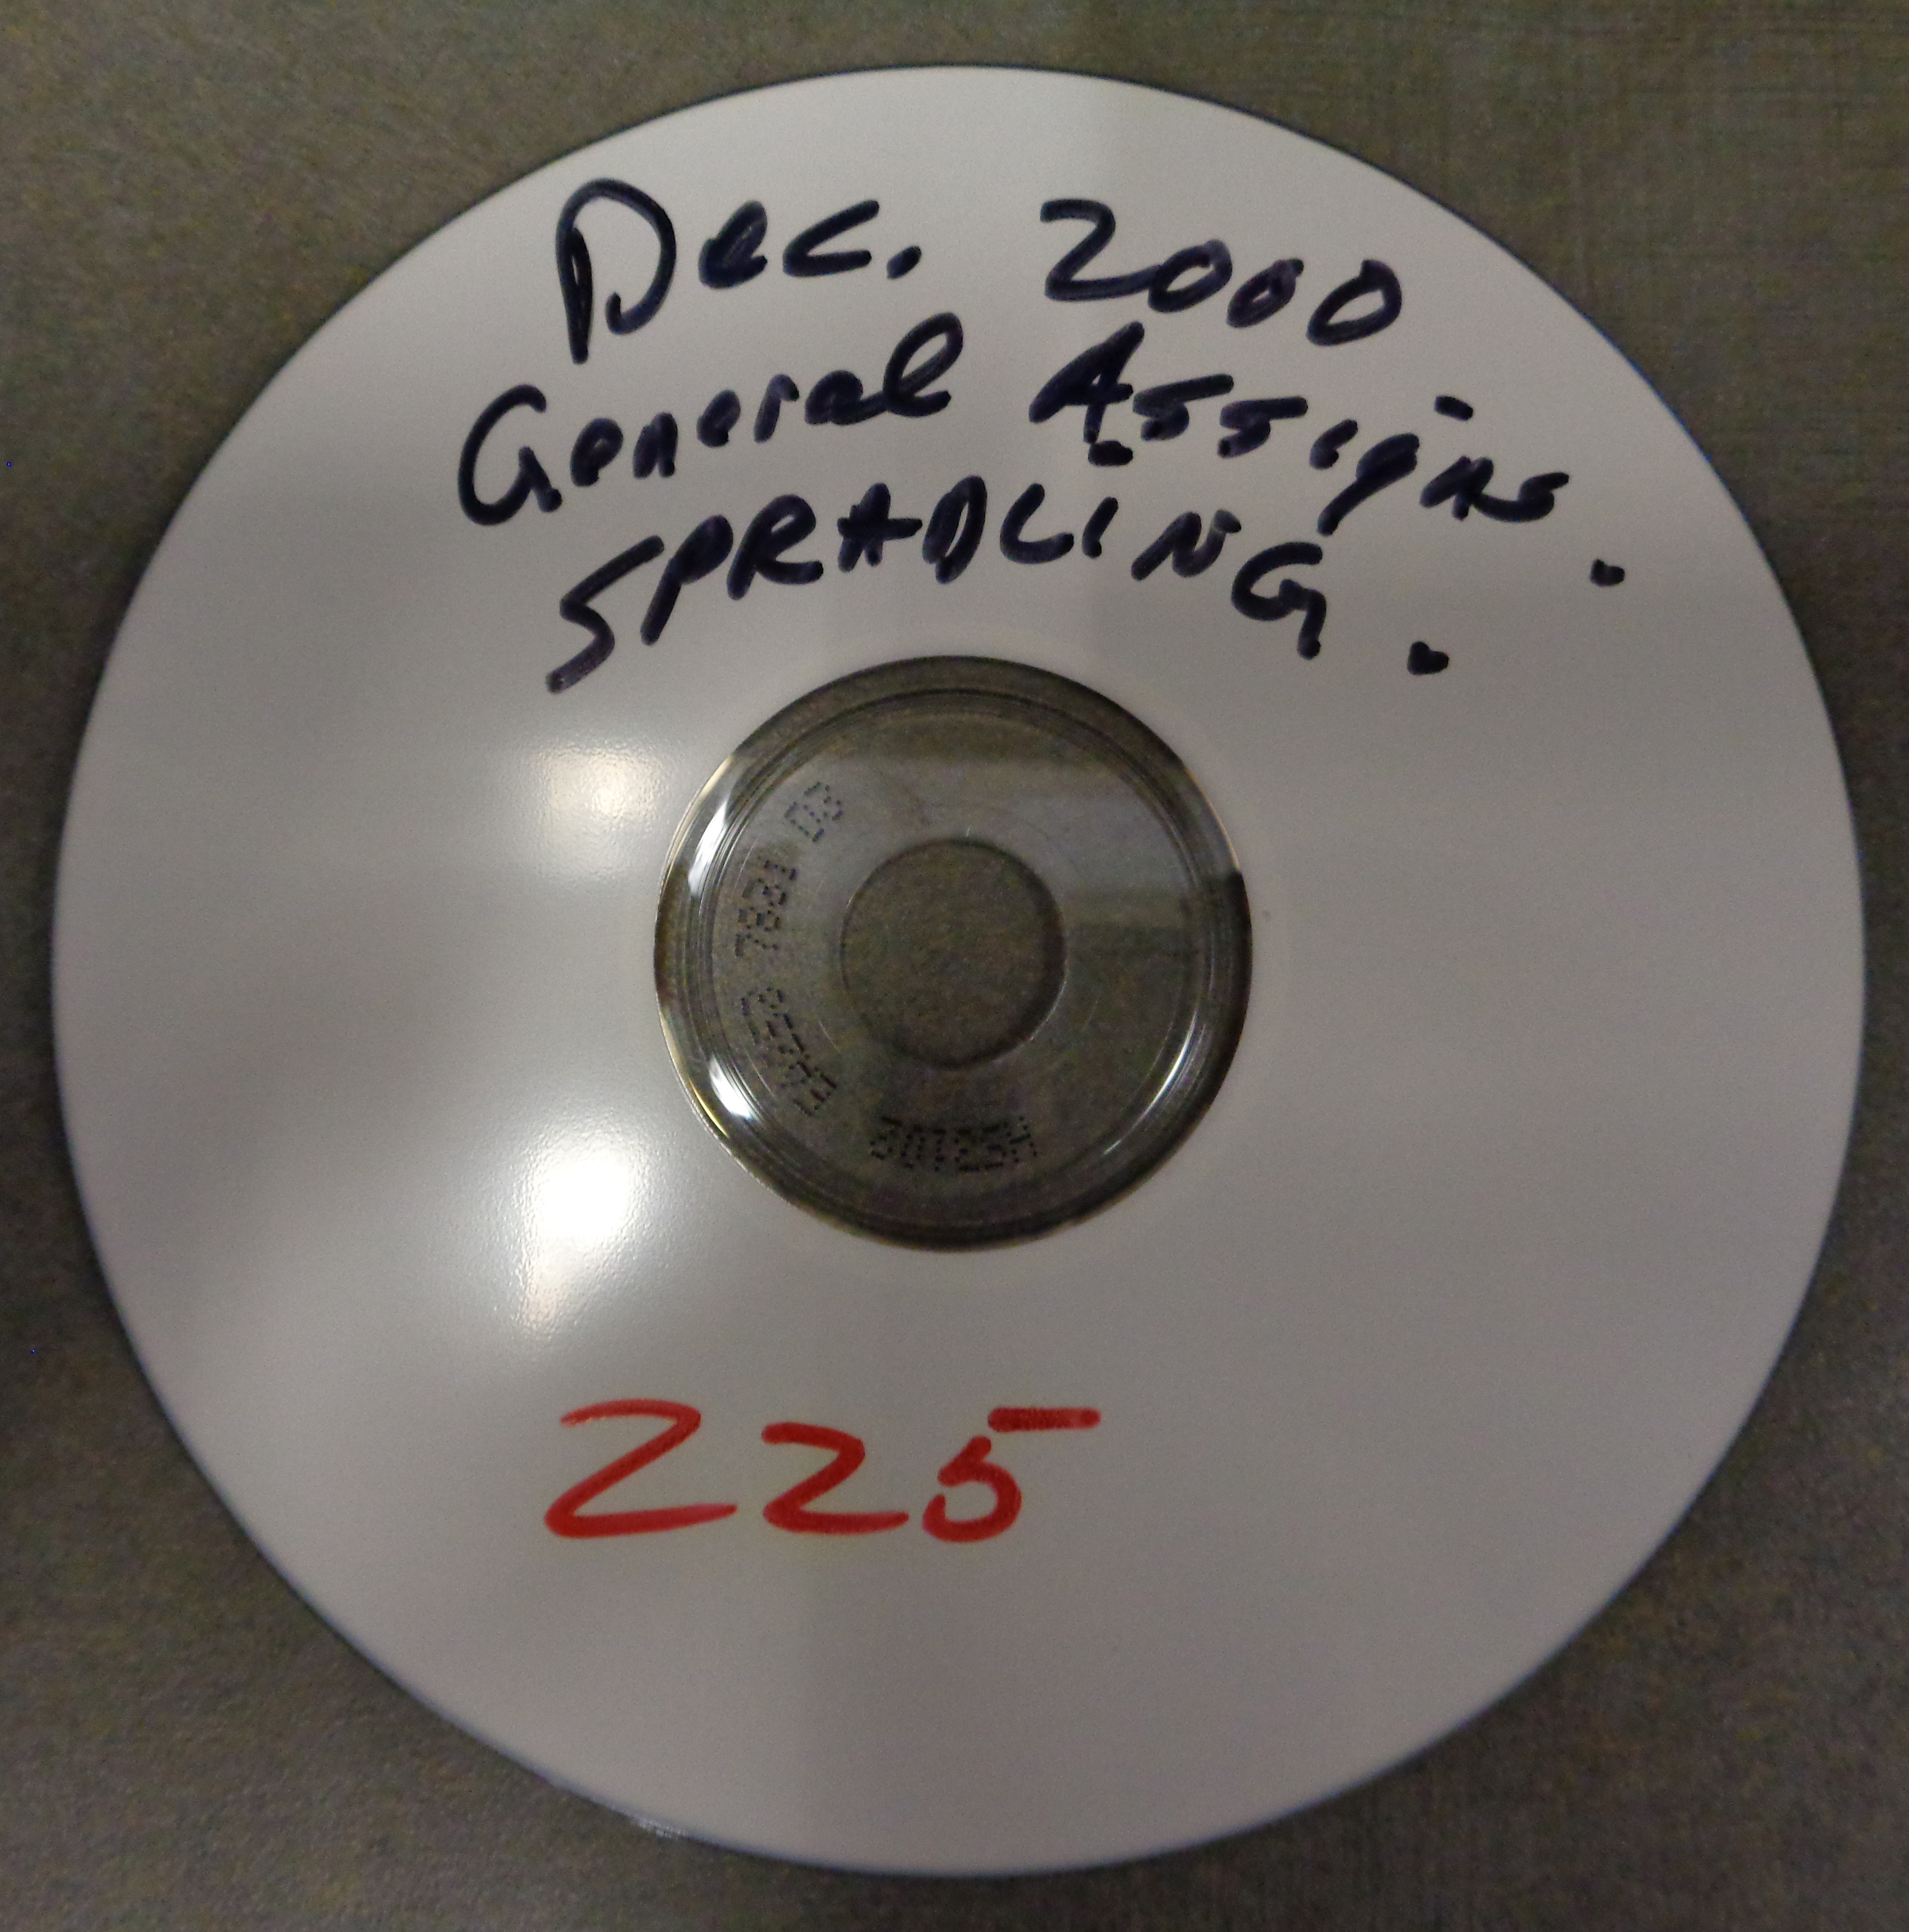 Dec. 2000
General Assigns.
SPRADLING.
7831 D3
225